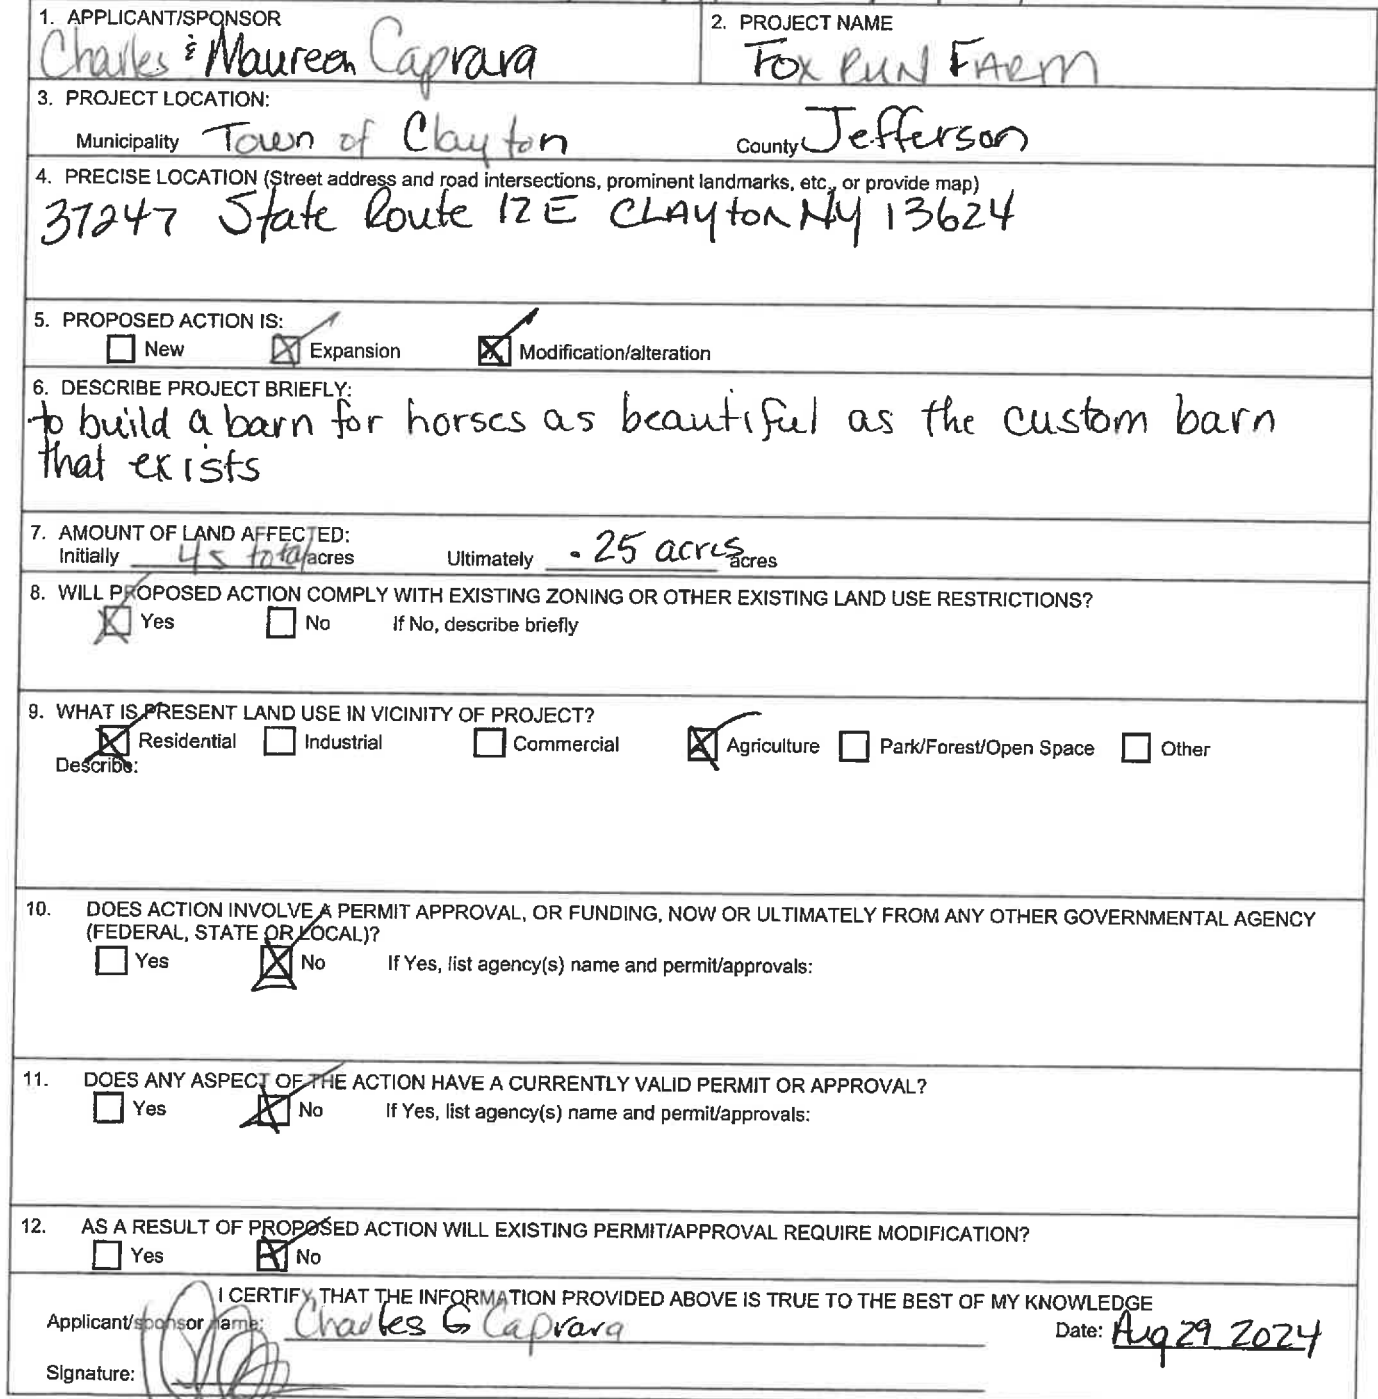 1. APPLICANT/SPONSOR
Charles & Maureen Caprara
2. PROJECT NAME
Fox RUN FARM
3. PROJECT LOCATION:
Municipality Town of Clayton County Jefferson
4. PRECISE LOCATION (Street address and road intersections, prominent landmarks, etc., or provide map)
37247 State Route 12E CLAYton NY 13624
5. PROPOSED ACTION IS:
New Expansion Modification/alteration
6. DESCRIBE PROJECT BRIEFLY:
to build a barn for horses as beautiful as the custom barn
that exists
7. AMOUNT OF LAND AFFECTED:
Initially 45 total acres Ultimately .25 acres acres
8. WILL PROPOSED ACTION COMPLY WITH EXISTING ZONING OR OTHER EXISTING LAND USE RESTRICTIONS?
Yes No If No, describe briefly
9. WHAT IS PRESENT LAND USE IN VICINITY OF PROJECT?
Residential Industrial Commercial Agriculture Park/Forest/Open Space Other
Describe:
10. DOES ACTION INVOLVE A PERMIT APPROVAL, OR FUNDING, NOW OR ULTIMATELY FROM ANY OTHER GOVERNMENTAL AGENCY
(FEDERAL, STATE OR LOCAL)?
Yes No If Yes, list agency(s) name and permit/approvals:
11. DOES ANY ASPECT OF THE ACTION HAVE A CURRENTLY VALID PERMIT OR APPROVAL?
Yes No If Yes, list agency(s) name and permit/approvals:
12. AS A RESULT OF PROPOSED ACTION WILL EXISTING PERMIT/APPROVAL REQUIRE MODIFICATION?
Yes No
I CERTIFY THAT THE INFORMATION PROVIDED ABOVE IS TRUE TO THE BEST OF MY KNOWLEDGE
Applicant/sponsor name: Charles G Caprara Date: Aug 29 2024
Signature: